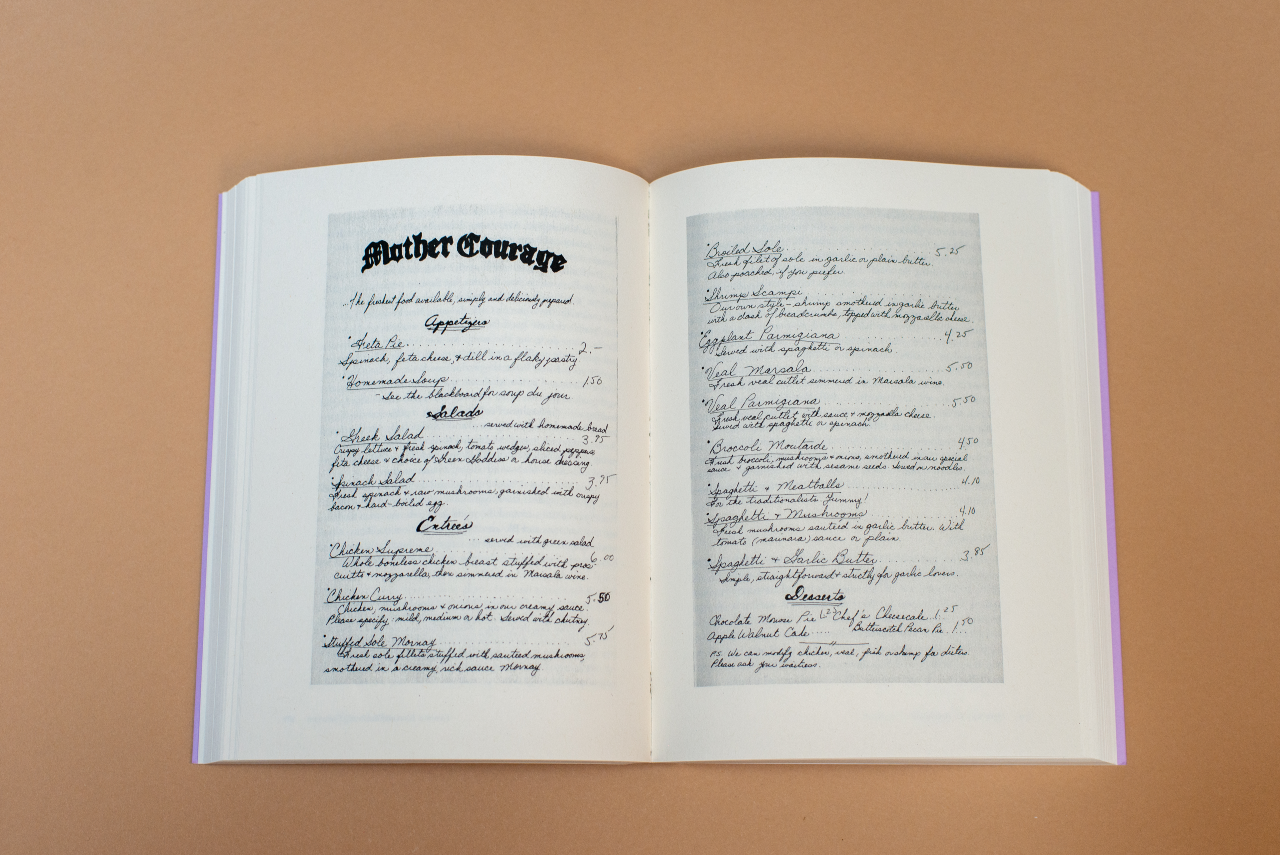 Mother Courage
...the freshest food available, simply and deliciously prepared
Appetizers
Feta Pie 2.-
Spinach, feta cheese & dill in a flaky pastry
Homemade Soup 1.50
- See the blackboard for soup du jour
Salads
...served with homemade bread
Greek Salad 3.95
Crispy lettuce & fresh spinach, tomato wedges, sliced peppers
feta cheese & choice of Green Goddess or house dressing
Spinach Salad 3.75
Fresh spinach & raw mushrooms, garnished with crispy
bacon & hard-boiled egg
Entrées
... served with green salad
Chicken Supreme 6.00
Whole boneless chicken breast stuffed with pros-
ciutto & mozzarella, then simmered in Marsala wine.
Chicken Curry 5.50
Chicken, mushrooms & onions in our creamy sauce.
Please specify - mild, medium or hot. Served with chutney.
Stuffed Sole Mornay 5.75
Fresh sole fillets, stuffed with sauteed mushrooms,
smothered in a creamy, rich sauce Mornay.
Broiled Sole 5.25
Fresh filet of sole in garlic or plain butter.
Also poached, if you prefer
Shrimp Scampi
Our own style - shrimp smothered in garlic butter
with a dash of breadcrumbs, topped with mozzarella cheese.
Eggplant Parmigiana 4.25
Served with spaghetti or spinach
Veal Marsala 5.50
Fresh veal cutlet simmered in Marsala wine.
Veal Parmigiana 5.50
Fresh veal cutlet with sauce & mozzarella cheese.
Served with spaghetti or spinach
Broccoli Moutarde 4.50
Fresh broccoli, mushrooms & onions, smothered in our special
sauce & garnished with sesame seeds. Served on noodles.
Spaghetti & Meatballs 4.10
For the traditionalists. Yummy!
Spaghetti & Mushrooms 4.10
Fresh mushrooms sauteed in garlic butter. With
tomato (marinara) sauce or plain
Spaghetti & Garlic Butter 3.85
Simple, straightforward & strictly for garlic lovers.
Desserts
Chocolate Mousse Pie 1.25 Chef's Cheesecake 1.25
Apple Walnut Cake ..... Butterscotch Pecan Pie 1.50
P.S. We can modify chicken, veal, fish or shrimp for dieters.
Please ask your waitress.